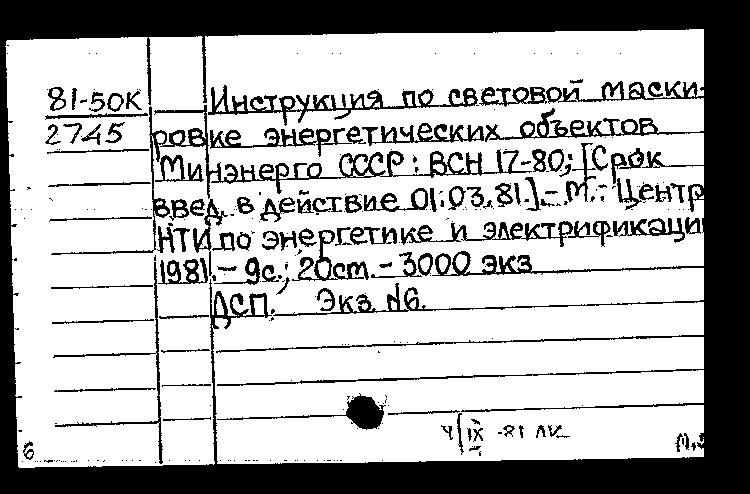 81-50К
2745
Инструкция по световой маски-
ровке энергетических объектов
Минэнерго СССР: ВСН 17-80; [Срок
введ. в действие 01.03.81.].- М.: Центр
НТИ по энергетике и электрификации
1981.- 9с.; 20см.- 3000 экз
ДСП. Экз. №6.
4/IX -81
6